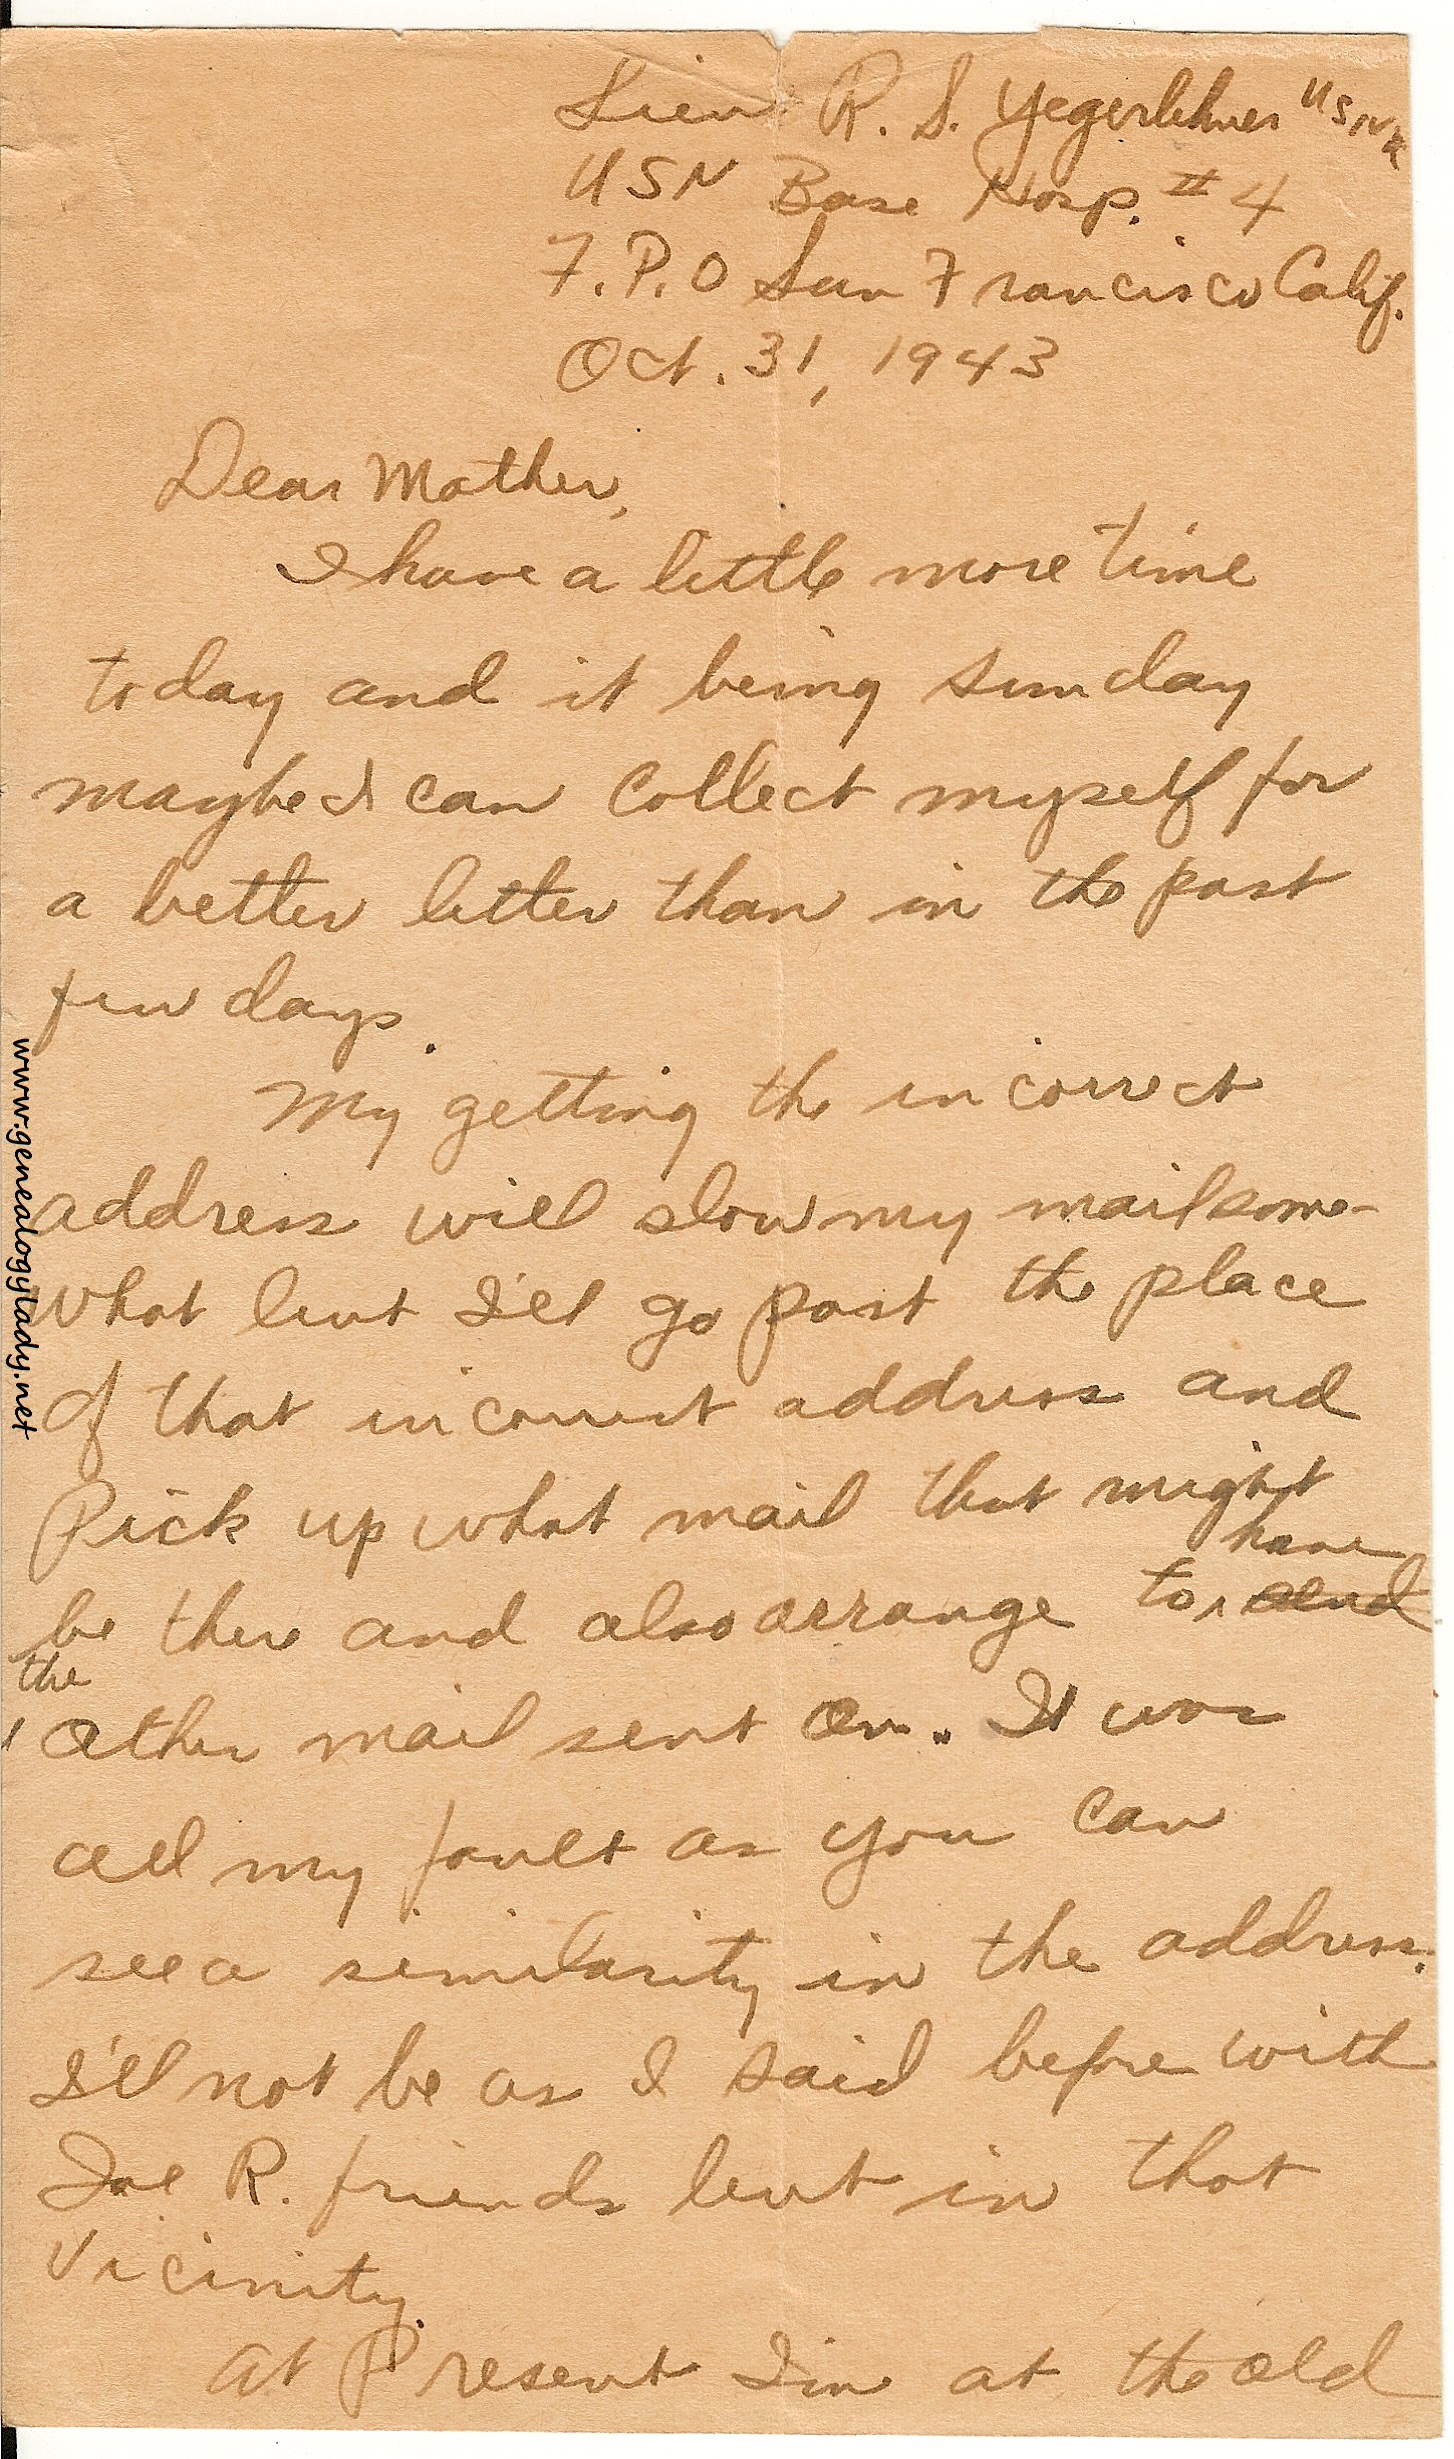 Lieu R. S. Yegerlehner USNR
USN Base Hosp. #4
F.P.O San Francisco Calif.
Oct. 31, 1943
Dear Mother,
I have a little more time
today and it being Sunday
maybe I can collect myself for
a better letter than in the past
few days.
My getting the incorrect
address will slow my mail some-
what but I'll go past the place
of that incorrect address and
Pick up what mail that might
have
be there and also arrange to send
the
other mail sent on. It was
all my fault as you can
see a similarity in the address.
I'll not be as I said before with
Joe R. friends but in that
vicinity.
At Present I'm at the old
www.genealogylady.net